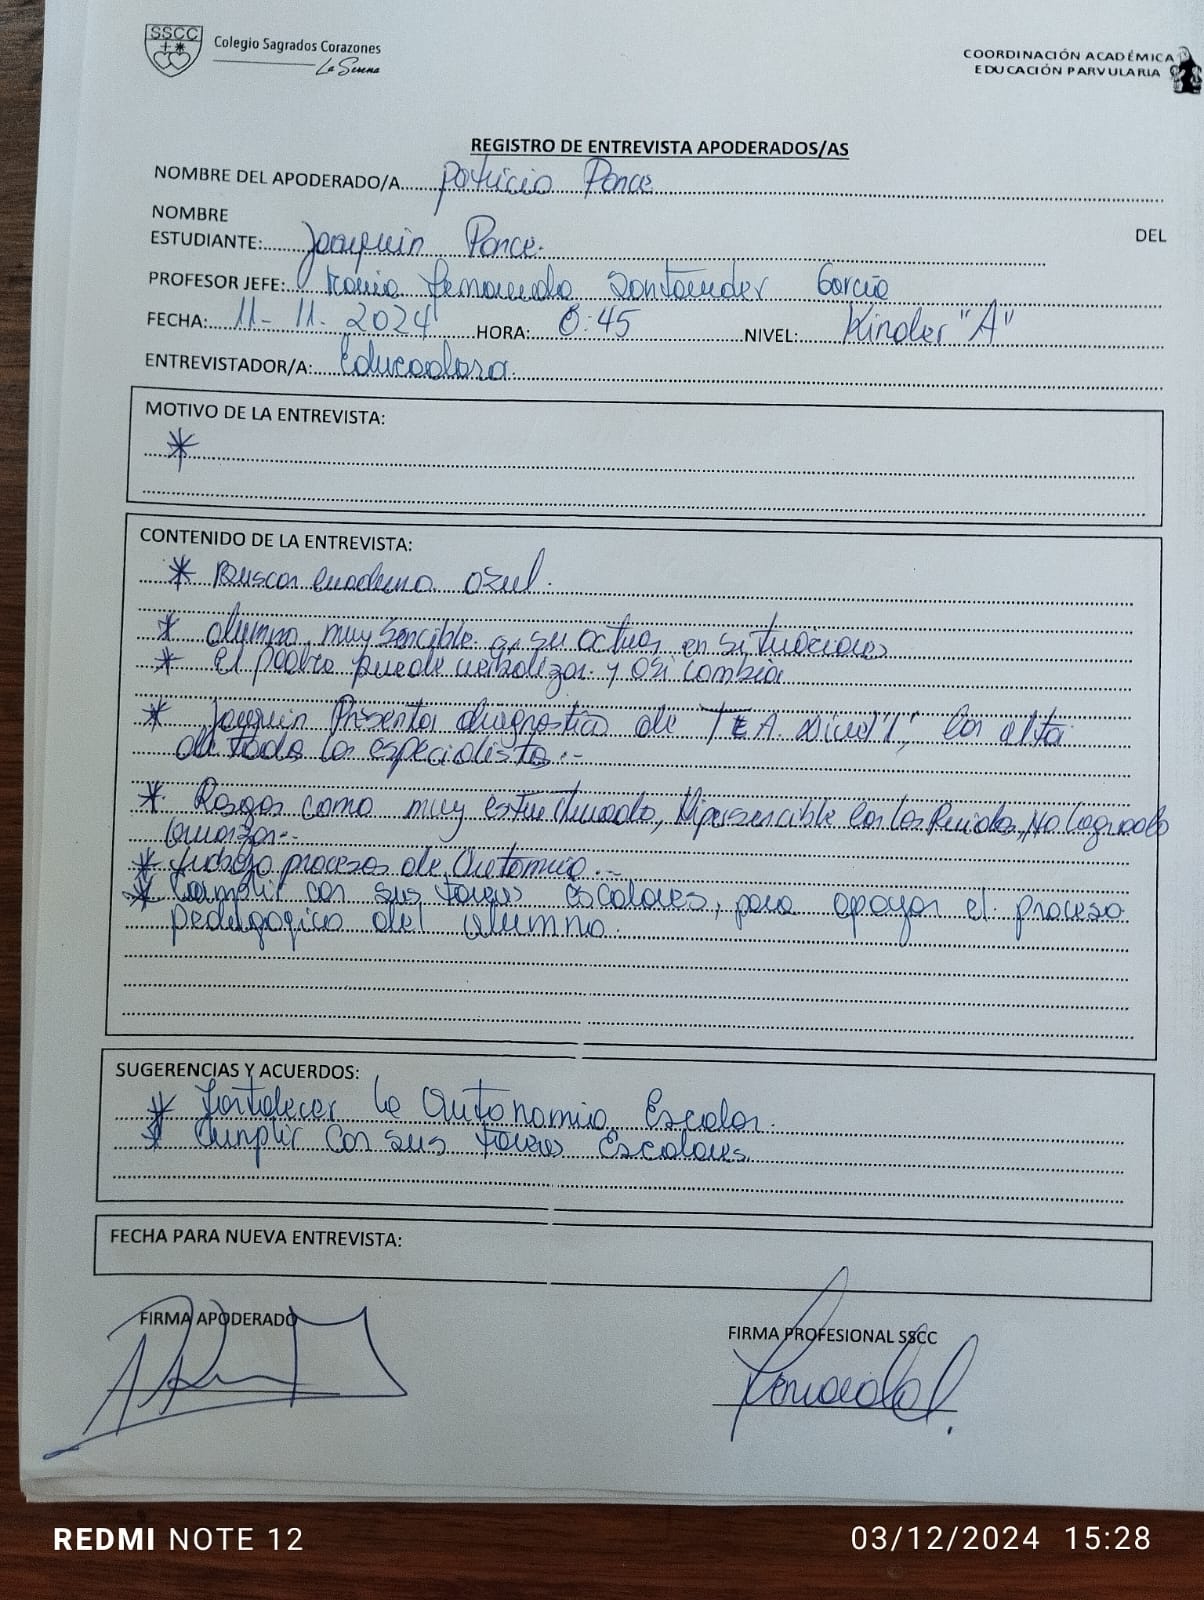 SSCC
Colegio Sagrados Corazones
La Serena
COORDINACIÓN ACADÉMICA
EDUCACIÓN PARVULARIA
REGISTRO DE ENTREVISTA APODERADOS/AS
NOMBRE DEL APODERADO/A Patricio Ponce
NOMBRE DEL
ESTUDIANTE: Joaquin Ponce.
PROFESOR JEFE: Fernanda Santander Garcia
FECHA: 11-11-2024 HORA: 8:45 NIVEL: Kinder "A"
ENTREVISTADOR/A: Educadora.
MOTIVO DE LA ENTREVISTA:
*
CONTENIDO DE LA ENTREVISTA:
* Buscar cuaderno azul.
* Alumno muy sencible en su actuar en situaciones
* El padre puede verbalizar y asi cambia
* Joaquin Presenta diagnostico de TEA Nivel "1", con alta
de todo los especialista.-
* Rasgos como muy estructurado, Hipersencible con los Ruidos, No logrado
* trabajo procesos de Autonomia.-
* Cumplir con sus tareas escolares, para apoyar el proceso
pedagogico del alumno.
SUGERENCIAS Y ACUERDOS:
* Fortalecer la Autonomia Escolar.
* Cumplir con sus tareas Escolares
FECHA PARA NUEVA ENTREVISTA:
FIRMA APODERADO
FIRMA PROFESIONAL SSCC
REDMI NOTE 12
03/12/2024 15:28